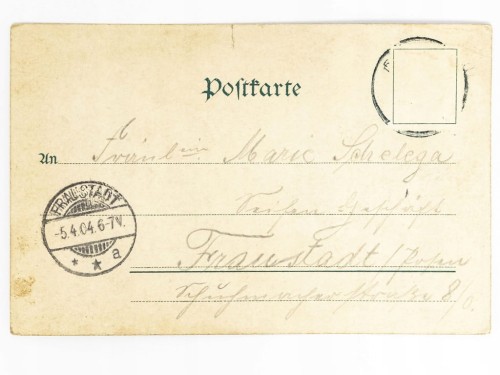 Postkarte
An Fräulein Marie Schelega
Seifen Geschäft
Fraustadt / Posen
Schuhmacherstraße 8/0.
FRAUSTADT
-5.4.04.6-7V.
* * a